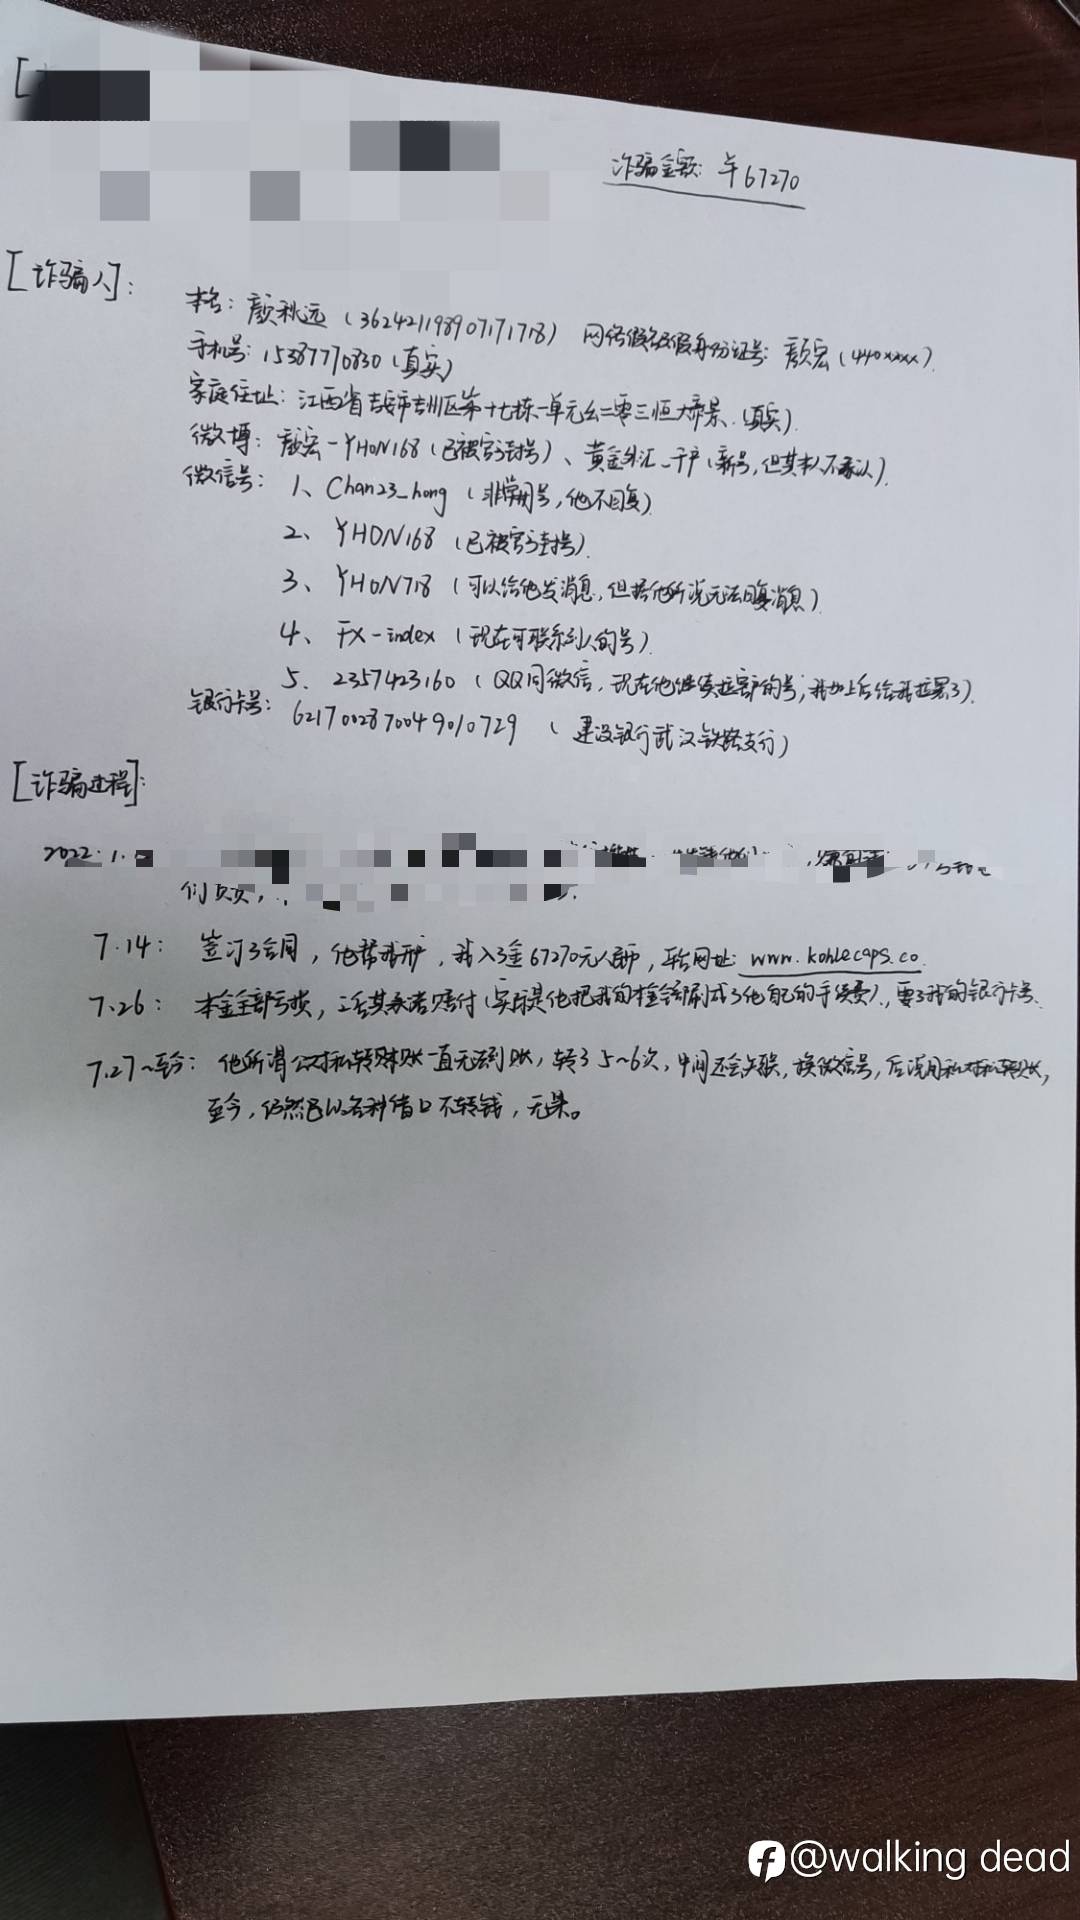 诈骗金额: 羊67270
[诈骗人]:
本名: 颜秋远 (362421198907171718) 网络假名及假身份证号: 颜宏 (440xxxx)
手机号: 15387770830 (真实)
家庭住址: 江西省吉安市吉州区第十七栋一单元 二零三恒大帝景. (真实)
微博: 颜宏-YHON168 (已被官方封号)、黄金外汇_于 (新号, 但其本人不承认)
微信号: 1、Chan23_hong (非常用号, 他不回复)
2、YHON168 (已被官方封号)
3、YHON718 (可以给他发消息, 但据他所说无法回复消息)
4、FX-index (现在可联系到人的号)
5、2357423160 (QQ同微信, 现在他继续拉客户的号; 我加上后给我拉黑了)
银行卡号: 6217002870049010729 (建设银行武汉铁路支行)
[诈骗过程]:
2022.1.
们
7.14: 签订了合同, 他帮我开户, 我入了金67270元人民币, 平台网址: www.kohlecaps.co.
7.26: 本金全部亏损, 其承诺赔付 (实际是他把我的本金全部刷成了他自己的手续费), 要了我的银行卡号.
7.27~至今: 他所谓公对私转账一直无法到账, 转了5~6次, 中间还会失联, 换微信号, 后说用私对私转账,
至今, 仍然以各种借口不转钱, 无果。
@walking dead